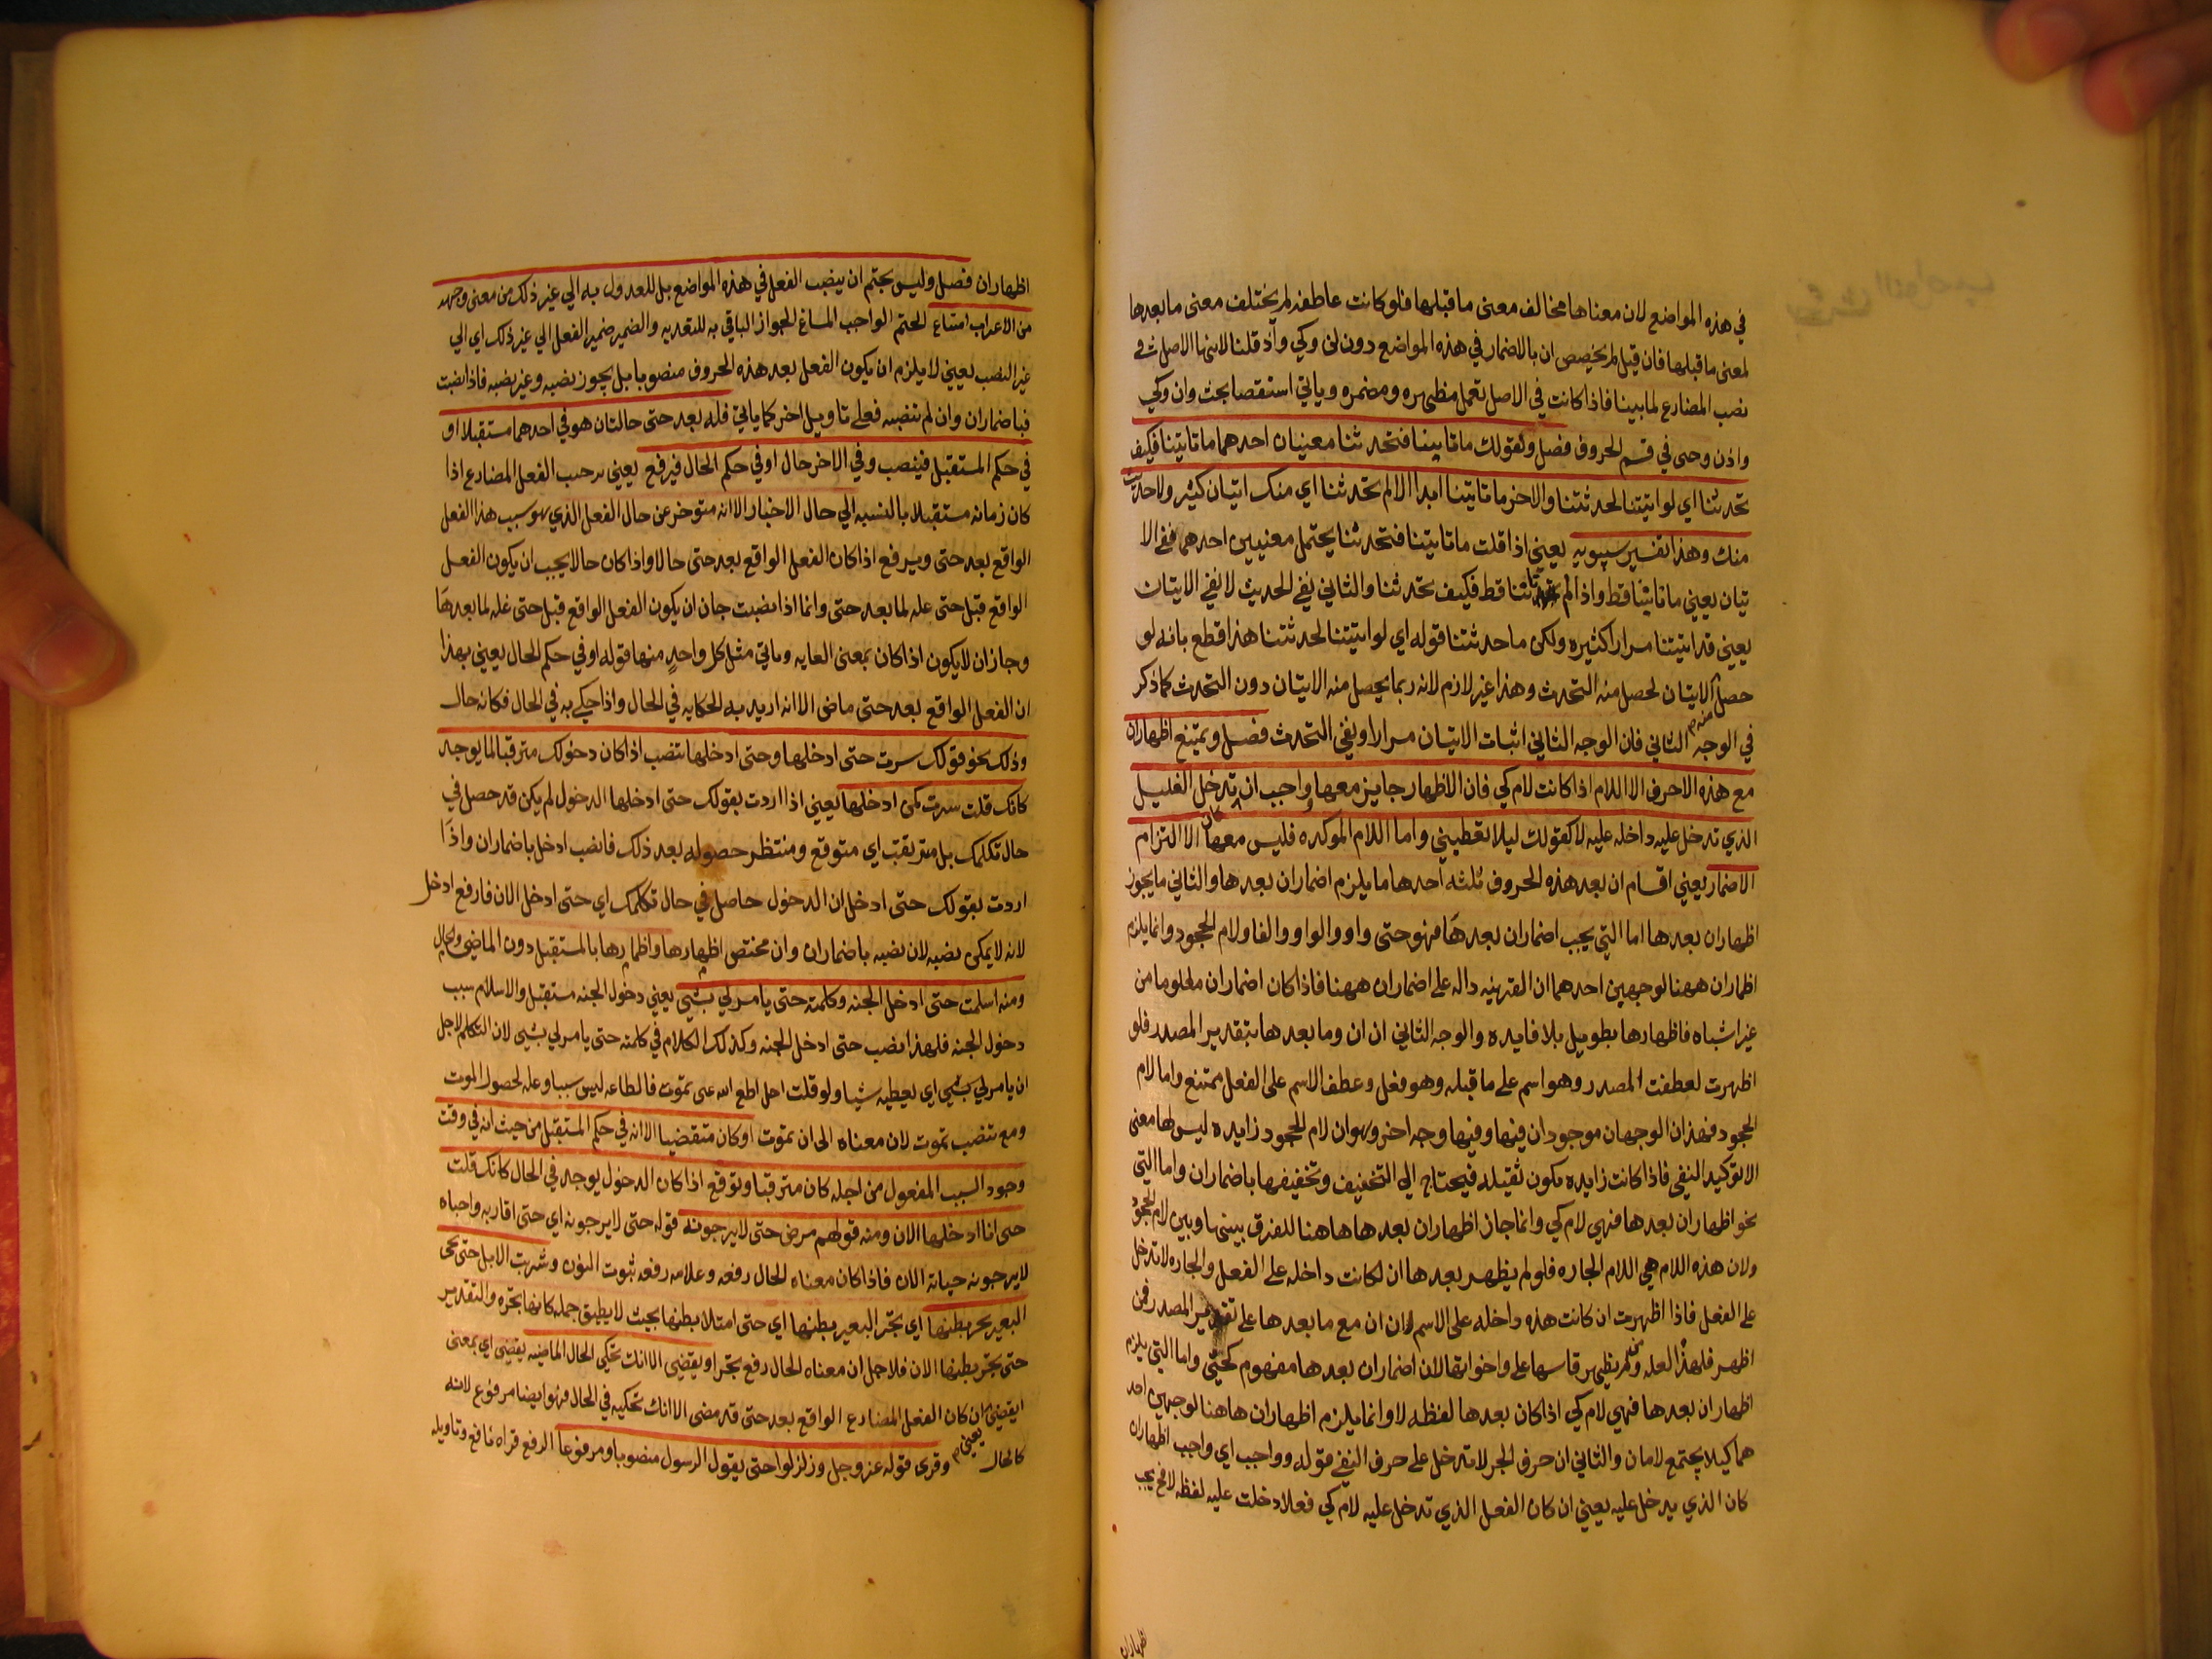 في هذه المواضع لان معناها مخالف معنى ما قبلها فلو كانت عاطفه لم يختلف معنى ما بعدها
لمعنى ما قبلها فان قيل لم يخصص ان بالاضمار في هذه المواضع دون لن وكي واذ قلنا لانها الاصل في
نصب المضارع لما بينا فاذا كانت في الاصل تعمل مظهره ومضمره وياتي استقصا بحث وان وكي
واذن وحتى في قسم الحروف فصل ولقولك ما تاتينا فتحدثنا معنيان احدهما ما تاتينا فكيف
تحدثنا اي لو اتيتنا لحدثتنا والاخر ما تاتينا ابدا الا لم تحدثنا اي منك اتيان كثير ولا حديث
منك وهذا تفسير سيبويه يعني اذا قلت ما تاتيتنا فتحدثنا يحتمل معنيين احدهما نفي الا
تيان يعني ما تاتينا قط واذا لم تاتنا قط فكيف تحدثنا والثاني نفي الحديث لا نفي الاتيان
يعني قد اتيتنا مرارا كثيره ولكن ما حدثتنا قوله اي لو اتيتنا لحدثتنا هذا قطع بانه لو
حصل الاتيان لحصل منه التحدث وهذا غير لازم لانه ربما يحصل منه الاتيان دون التحدث كما ذكر
في الوجه الثاني فان الوجه الثاني اثبات الاتيان مرارا ونفي التحدث فصل ويمتنع اظهار ان
مع هذه الاحرف الا اللام اذا كانت لام كي فان الاظهار جايز معها وواجب ان كان تدخل الفعليل
الذي تدخل عليه داخله عليه لا كقولك ليلا تعطيني واما اللام الموكده فليس معها الا التزام
الاضمار يعني اقسام ان بعد هذه الحروف ثلثه احدها ما يلزم اضمار ان بعدها والثاني ما يجوز
اظهار ان بعدها اما التي يجب اضمار ان بعدها فهو حتى واو والواو والفا ولام الجحود وانما يلزم
اظمار ان ههنا لوجهين احدهما ان القرينه داله على اضمار ان ههنا فاذا كان اضمار ان معلوما من
غير اشباه فاظهارها تطويل بلا فايده والوجه الثاني ان ان وما بعدها بتقدير المصدر فلو
اظهرت لعطفت المصدر وهو اسم على ما قبله وهو فعل وعطف الاسم على الفعل ممتنع واما لام
الجحود فهذان الوجهان موجودان فيها وفيها وجه اخر وهو ان لام الجحود زايده ليس لها معنى
الا توكيد النفي فاذا كانت زايده يكون ثقيله فيحتاج الى التخفيف وتخفيفها باضمار ان واما التي
يجوز اظهار ان بعدها فهي لام كي وانما جاز اظهار ان بعدها هاهنا للفرق بينها وبين لام الجحود
ولان هذه اللام هي اللام الجاره فلو لم يظهر بعدها ان لكانت داخله على الفعل والجاره لا تدخل
على الفعل فاذا اظهرت ان كانت هذه داخله على الاسم لان ان مع ما بعدها على تقدير المصدر فمن
اظهر فلهذا العله ومن لم يظهر قاسها على واخواتها لان اضمار ان بعدها مفهوم كحتى واما التي يلزم
اظهار ان بعدها فهي لام كي اذا كان بعدها لفظه لا وانما يلزم اظهار ان هاهنا لوجهين احد
هما كيلا يجتمع لامان والثاني ان حرف الجر لا تدخل على حرف النفي قوله وواجب اي واجب اظهار ان
كان الذي يدخل عليه يعني ان كان الفعل الذي تدخل عليه لام كي فعلا دخلت عليه لفظه لا فح يجب
اظهار ان
اظهار ان فصل وليس بحتم ان ينصب الفعل في هذه المواضع بل للعدول به الي غير ذلك من معنى وجهه
من الاعراب امتناع الحتم الواجب المساغ الجواز الباقي به للتعديه والضمير ضمير الفعل الي غير ذلك اي الي
غير النصب يعني لا يلزم ان يكون الفعل بعد هذه الحروف منصوبا بل يجوز نصبه وغير نصبه فاذا نصبت
فباضمار ان وان لم تنصبه فعلى تاويل اخر كما ياتي فله بعد حتى حالتان هو في احدهما مستقبلا او
في حكم المستقبل فينصب وفي الاخر حال او في حكم الحال فيرفع يعني نرحب الفعل المضارع اذا
كان زمانه مستقبلا بالنسبه الي حال الاخبار الا انه متوخر عن حال الفعل الذي هو سبب هذا الفعل
الواقع بعد حتى ويرفع اذا كان الفعل الواقع بعد حتى حالا واذا كان حالا يجب ان يكون الفعل
الواقع قبل حتى عله لما بعد حتى وانما اذا نصبت جاز ان يكون الفعل الواقع قبل حتى عله لما بعدها
وجاز ان لا يكون اذا كان بمعنى الغايه وياتي مثل كل واحد منها قوله او في حكم الحال يعني بهذا
ان الفعل الواقع بعد حتى ماضى الا انه اريد به الحكايه في الحال واذا حكي به في الحال فكانه حال
وذلك نحو قولك سرت حتى ادخلها وحتى ادخلها تنصب اذا كان دخولك مترقبا لما يوجد
كانك قلت سرت كي ادخلها يعني اذا اردت بقولك حتى ادخلها الدخول لم يكن قد حصل في
حال تكلمك بل مترقب اي متوقع ومنتظر حصوله بعد ذلك فانصب ادخل باضمار ان واذا
اردت بقولك حتى ادخل ان الدخول حاصل في حال تكلمك اي حتى ادخل الان فارفع ادخل
لانه لا يمكن نصبه لان نصبه باضمار ان وان مختص اظهارها واظمارها بالمستقبل دون الماضي والحال
ومنه اسلمت حتى ادخل الجنه وكلمته حتى يامر لي بشي يعني دخول الجنه مستقبل والاسلام سبب
دخول الجنه فلهذا نصب حتى ادخل الجنه وكذلك الكلام في كلمته حتى يامر لي بشي لان التكلم لاجل
ان يامر لي بشي اي يعطيه شيا ولو قلت اطع الله حتى تموت فالطاعه ليس سببا وعله لحصول الموت
ومع تنصب تموت لان معناه الى ان تموت او كان متقضيا الا انه في حكم المستقبل من حيث انه في وقت
وجود السبب المفعول من اجله كان مترقبا وتوقع اذا كان الدخول يوجد في الحال كانك قلت
حتى انا ادخلها الان ومنه قولهم مرض حتى لا يرجونه قوله حتى لا يرجونه اي حتى اقاربه واحباه
لا يرجونه حياته الان فاذا كان معناه الحال رفعه وعلامه رفعه ثبوت النون وشربت الابل حتى يجى
البعير يجر بطنها اي يجر البعير بطنها اي حتى امتلا بطنها بحيث لا يطيق حمله كانها تجره والتقدير
حتى يجر بطنها الان فلاجل ان معناه الحال رفع يجر او يقتضى الا انك تحكي الحال الماضيه يقضي اي بمعنى
ايقضي ان كان الفعل المضارع الواقع بعد حتى قد مضى الا انك تحكيه في الحال فهو ايضا مرفوع لانه
كالحال يعني وقرى قوله عز وجل وزلزلوا حتى يقول الرسول منصوبا ومرفوعا الرفع قراه نافع وتاويله